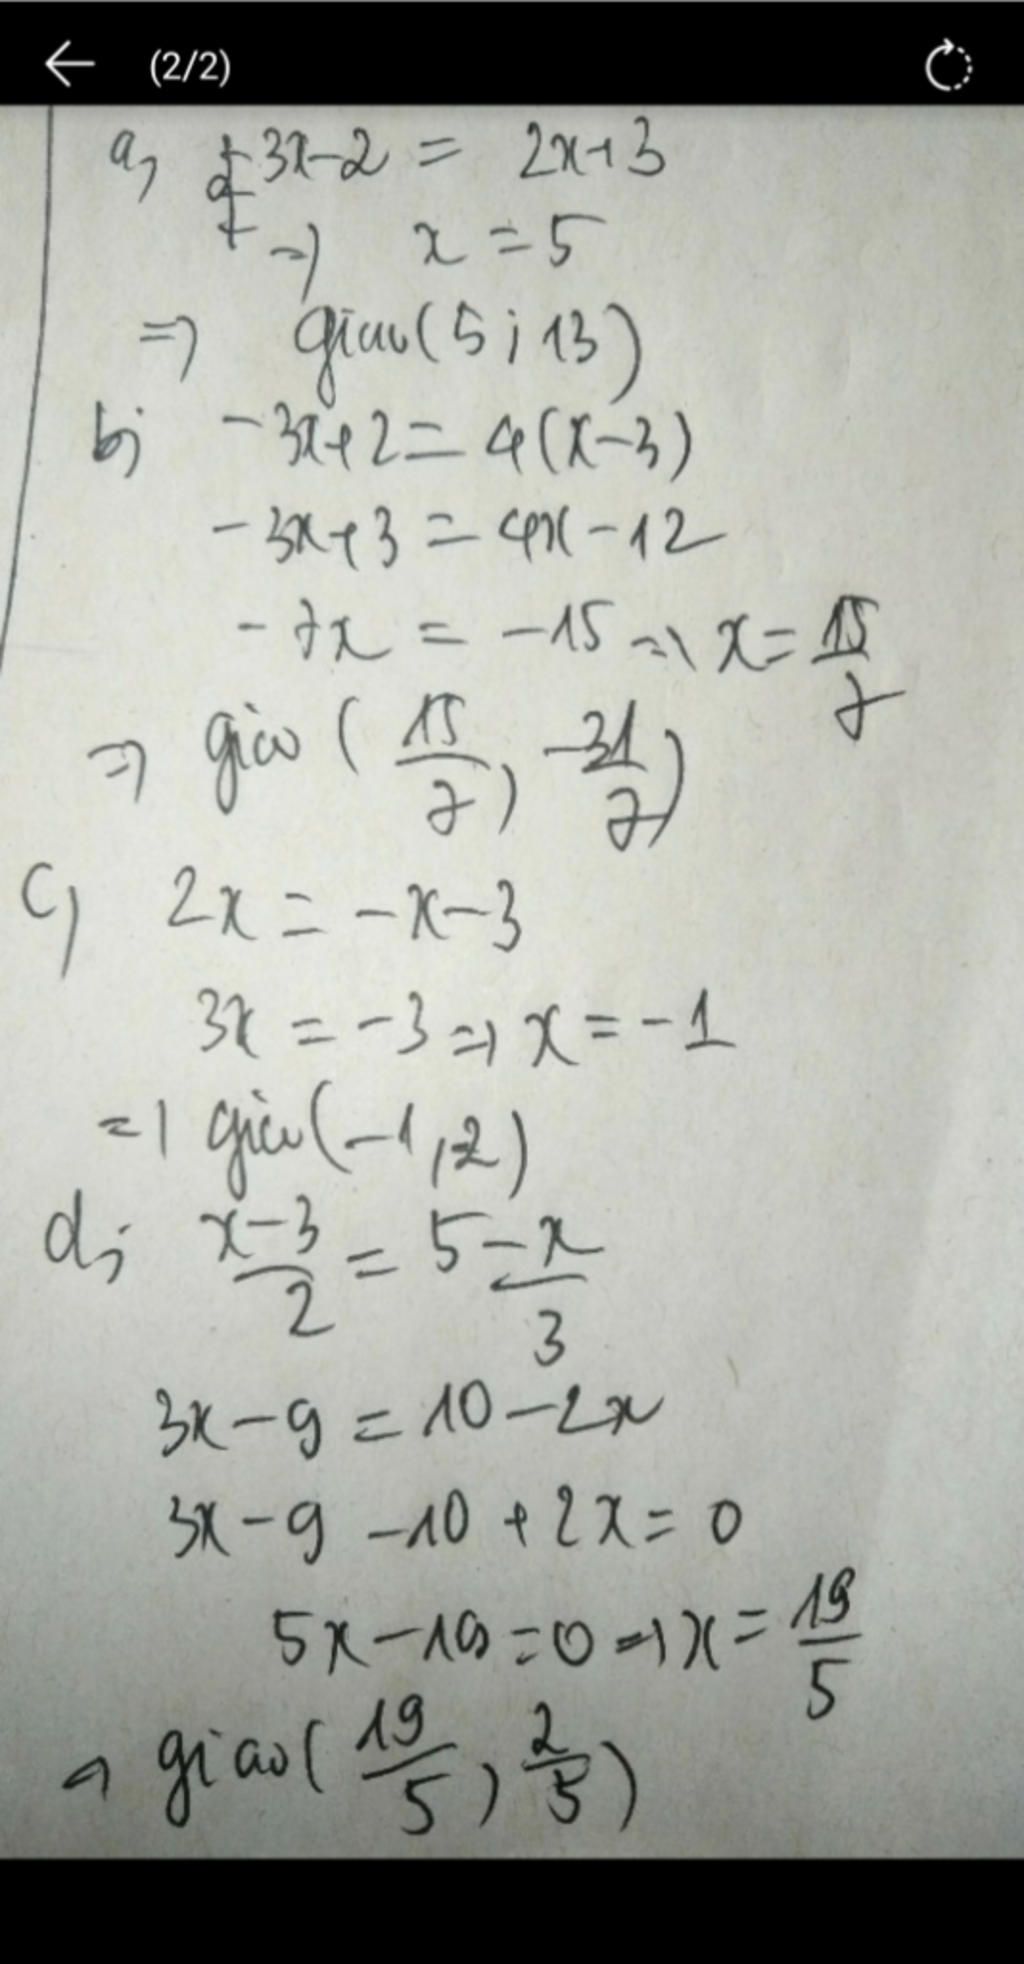 (2/2)
a, 3x-2 = 2x+3
=> x = 5
=> giao (5; 13)
b; -3x+2 = 4(x-3)
-3x+3 = 4x-12
-7x = -15 => x = 15/7
=> giao (15/7, -31/7)
c, 2x = -x-3
3x = -3 => x = -1
=> giao (-1, 2)
d; x-3/2 = 5-x/3
3x-9 = 10-2x
3x-9-10+2x = 0
5x-19=0 => x = 19/5
=> giao (19/5, 2/5)